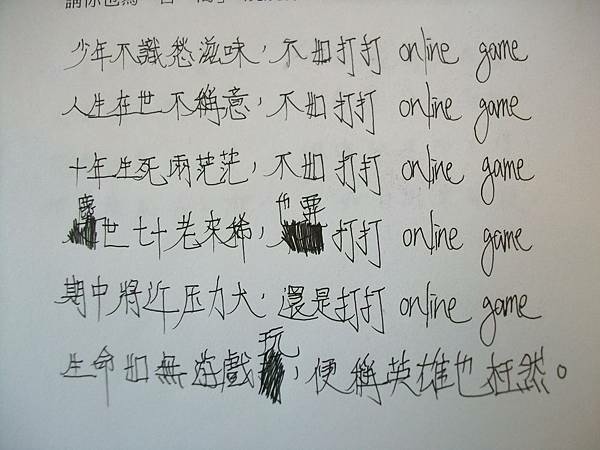 請你也寫一
少年不識愁滋味，不如打打 online game
人生在世不稱意，不如打打 online game
十年生死兩茫茫，不如打打 online game
塵世七十老來稀，也要打打 online game
期中將近压力大，還是打打 online game
生命如無遊戲玩，便稱英雄也枉然。